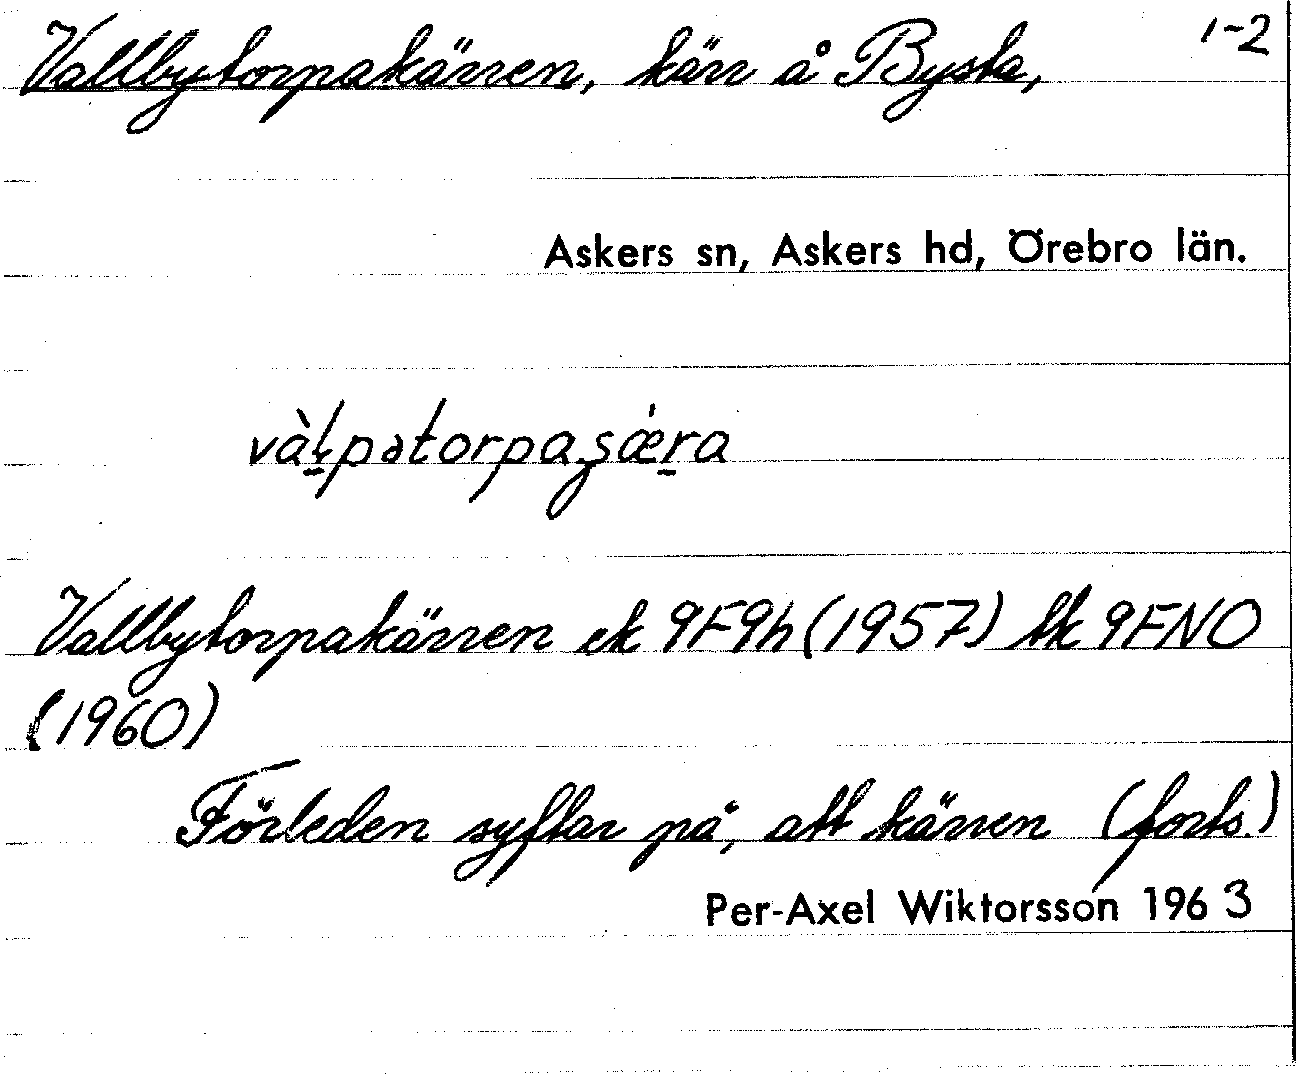 Vallbytorpakärren, kärr å Bysta, 1-2
Askers sn, Askers hd, Örebro län.
Vallbytorpakärren ek 9F9h (1957) tk 9FNO
(1960)
Förleden syftar på, att kärren (forts.)
Per-Axel Wiktorsson 1963